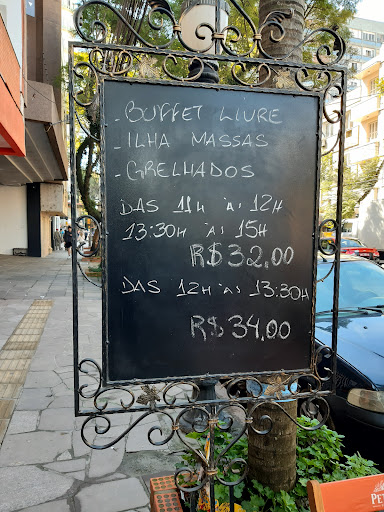 - BUFFET LIVRE
- ILHA MASSAS
- GRELHADOS
DAS 11H ÀS 12H
13:30H ÀS 15H
R$32,00
DAS 12H ÀS 13:30H
R$34,00